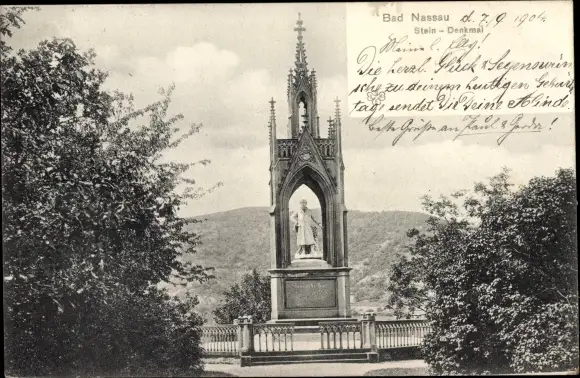 Bad Nassau d. 7/9 1904
Stein - Denkmal
Meine l. Elly!
Die herzl. Glück & Segenswün
sche zu deinem heutigen Geburts
tag sendet Dir Deine Minde
beste Grüße an Paul & Gerda!